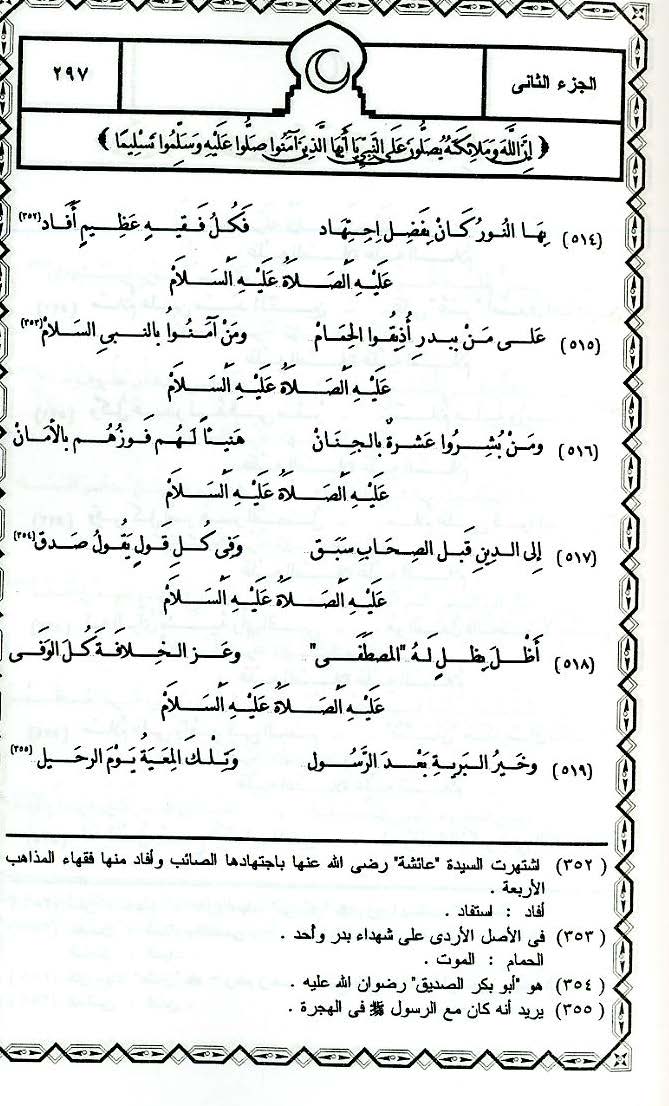 الجزء الثانى
٢٩٧
﴿ إِنَّ اللَّهَ وَمَلَائِكَتَهُ يُصَلُّونَ عَلَى النَّبِيِّ يَا أَيُّهَا الَّذِينَ آمَنُوا صَلُّوا عَلَيْهِ وَسَلِّمُوا تَسْلِيمًا ﴾
(٥١٤) بِهَا النُورُ كَانَ بِفَضْلِ اجْتِهَاد فَكُلُ فَقِيهٍ عَظِيمٍ أَفَاد (٣٥٢)
عَلَيْهِ الصَّلَاةُ عَلَيْهِ السَّلَامُ
(٥١٥) عَلَى مَنْ بِبَدرٍ أُذِيقُوا الحِمَامْ ومَنْ آمَنُوا بالنبىِ السَلَامْ (٣٥٣)
عَلَيْهِ الصَّلَاةُ عَلَيْهِ السَّلَامُ
(٥١٦) ومَنْ بُشِرُوا عَشرةٌ بالجِنَانْ هَنيئاً لَهُم فَوزُهُم بالأمَانْ
عَلَيْهِ الصَّلَاةُ عَلَيْهِ السَّلَامُ
(٥١٧) إلى الدينِ قَبلَ الصِحَابِ سَبَق وَفى كُلِ قَولٍ يَقُولُ صَدق (٣٥٤)
عَلَيْهِ الصَّلَاةُ عَلَيْهِ السَّلَامُ
(٥١٨) أَظَلَ بِظلٍ لَهُ "المصطَفَى" وعَز الخِلافَة كُلَ الوَفَى
عَلَيْهِ الصَّلَاةُ عَلَيْهِ السَّلَامُ
(٥١٩) وخَيرُ البَريةِ بَعْدَ الرَّسُول وَتِلكَ المَعِيَةُ يَوْمَ الرحِيل (٣٥٥)
(٣٥٢) اشتهرت السيدة "عائشة" رضى الله عنها باجتهادها الصائب وأفاد منها فقهاء المذاهب
الأربعة .
أفاد : استفاد .
(٣٥٣) فى الأصل الأردى على شهداء بدر وأحد .
الحمام : الموت .
(٣٥٤) هو "أبو بكر الصديق" رضوان الله عليه .
(٣٥٥) يريد أنه كان مع الرسول ﷺ فى الهجرة .